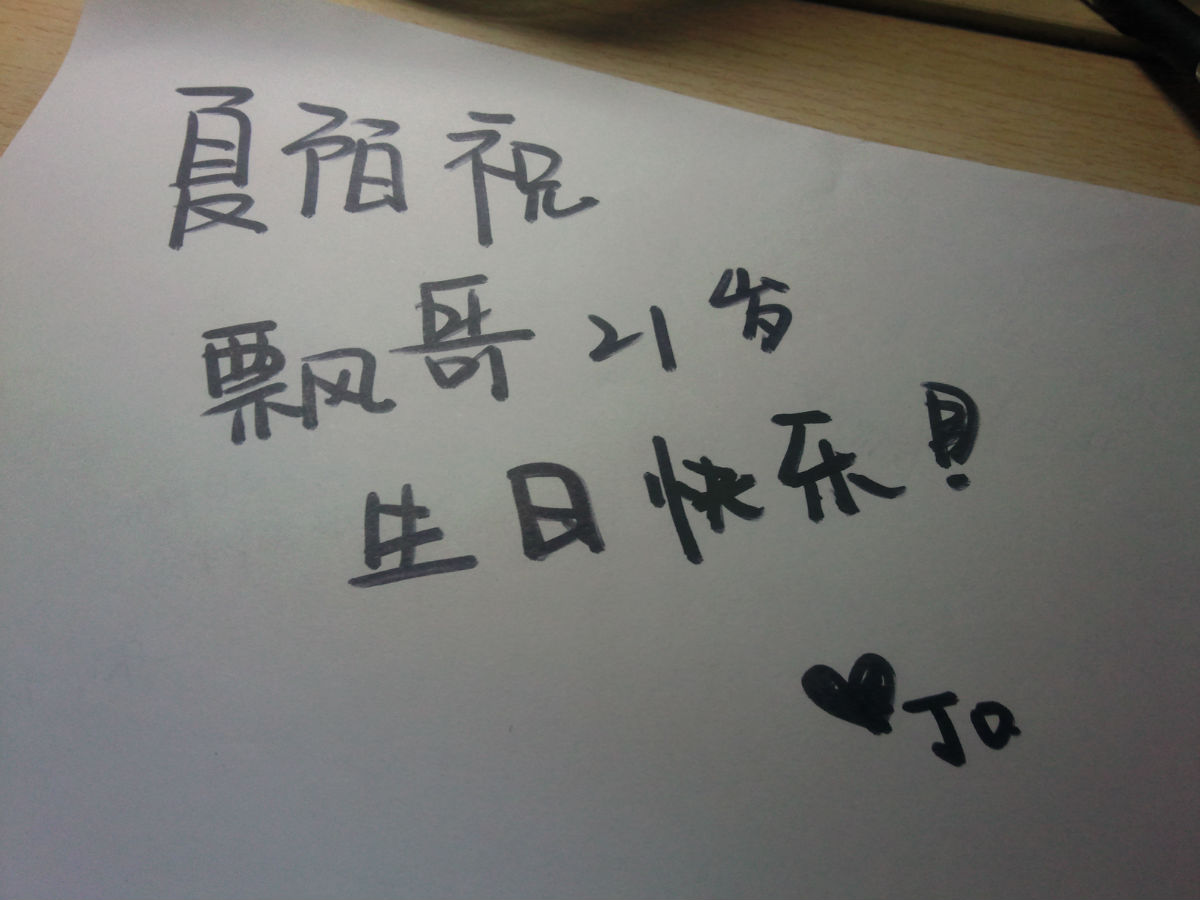 夏预祝
飘哥21岁
生日快乐!
♥Ja